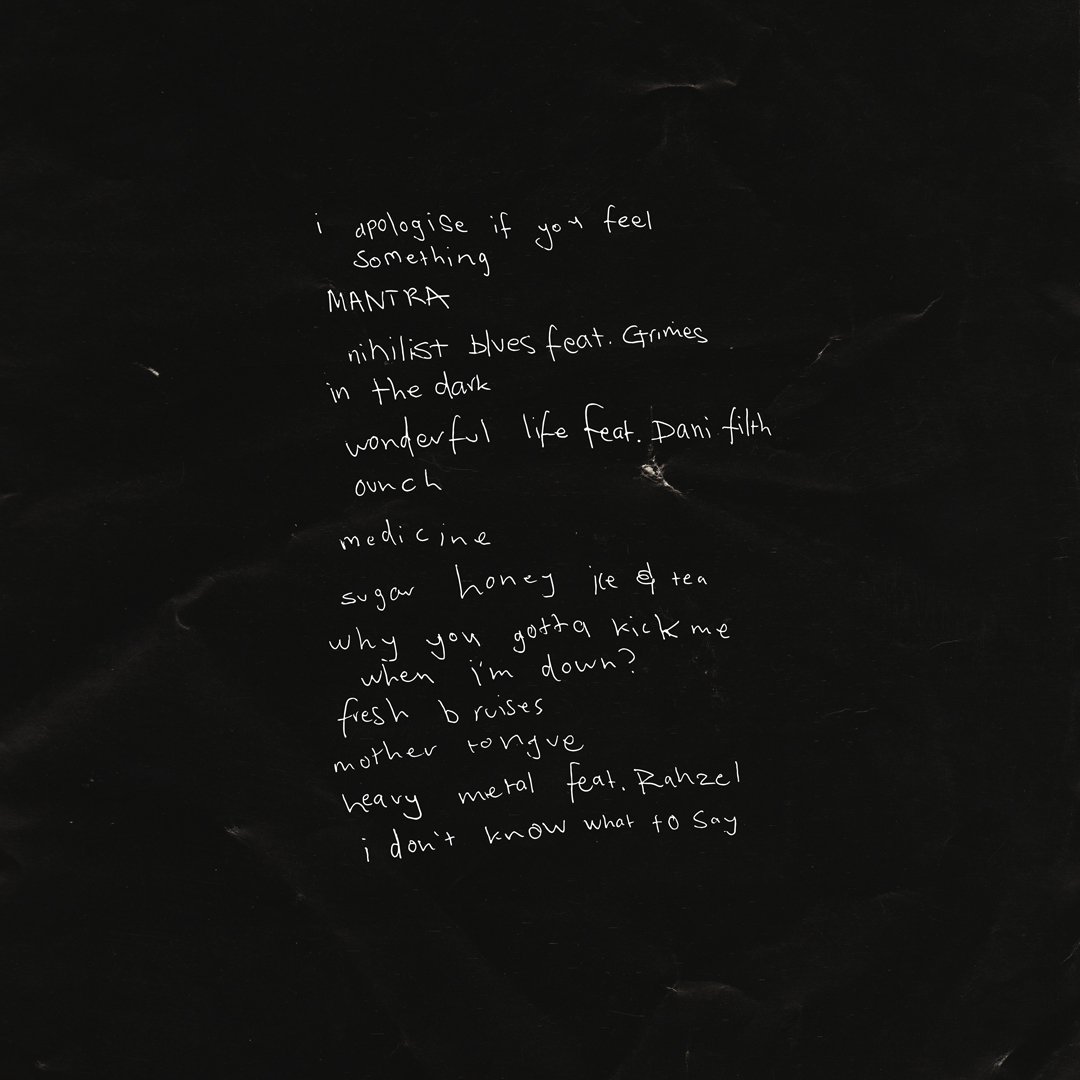 i apologise if you feel
something
MANTRA
nihilist blues feat. Grimes
in the dark
wonderful life feat. Dani filth
ounch
medicine
sugar honey ice & tea
why you gotta kick me
when i'm down?
fresh bruises
mother tongue
heavy metal feat. Rahzel
i don't know what to say